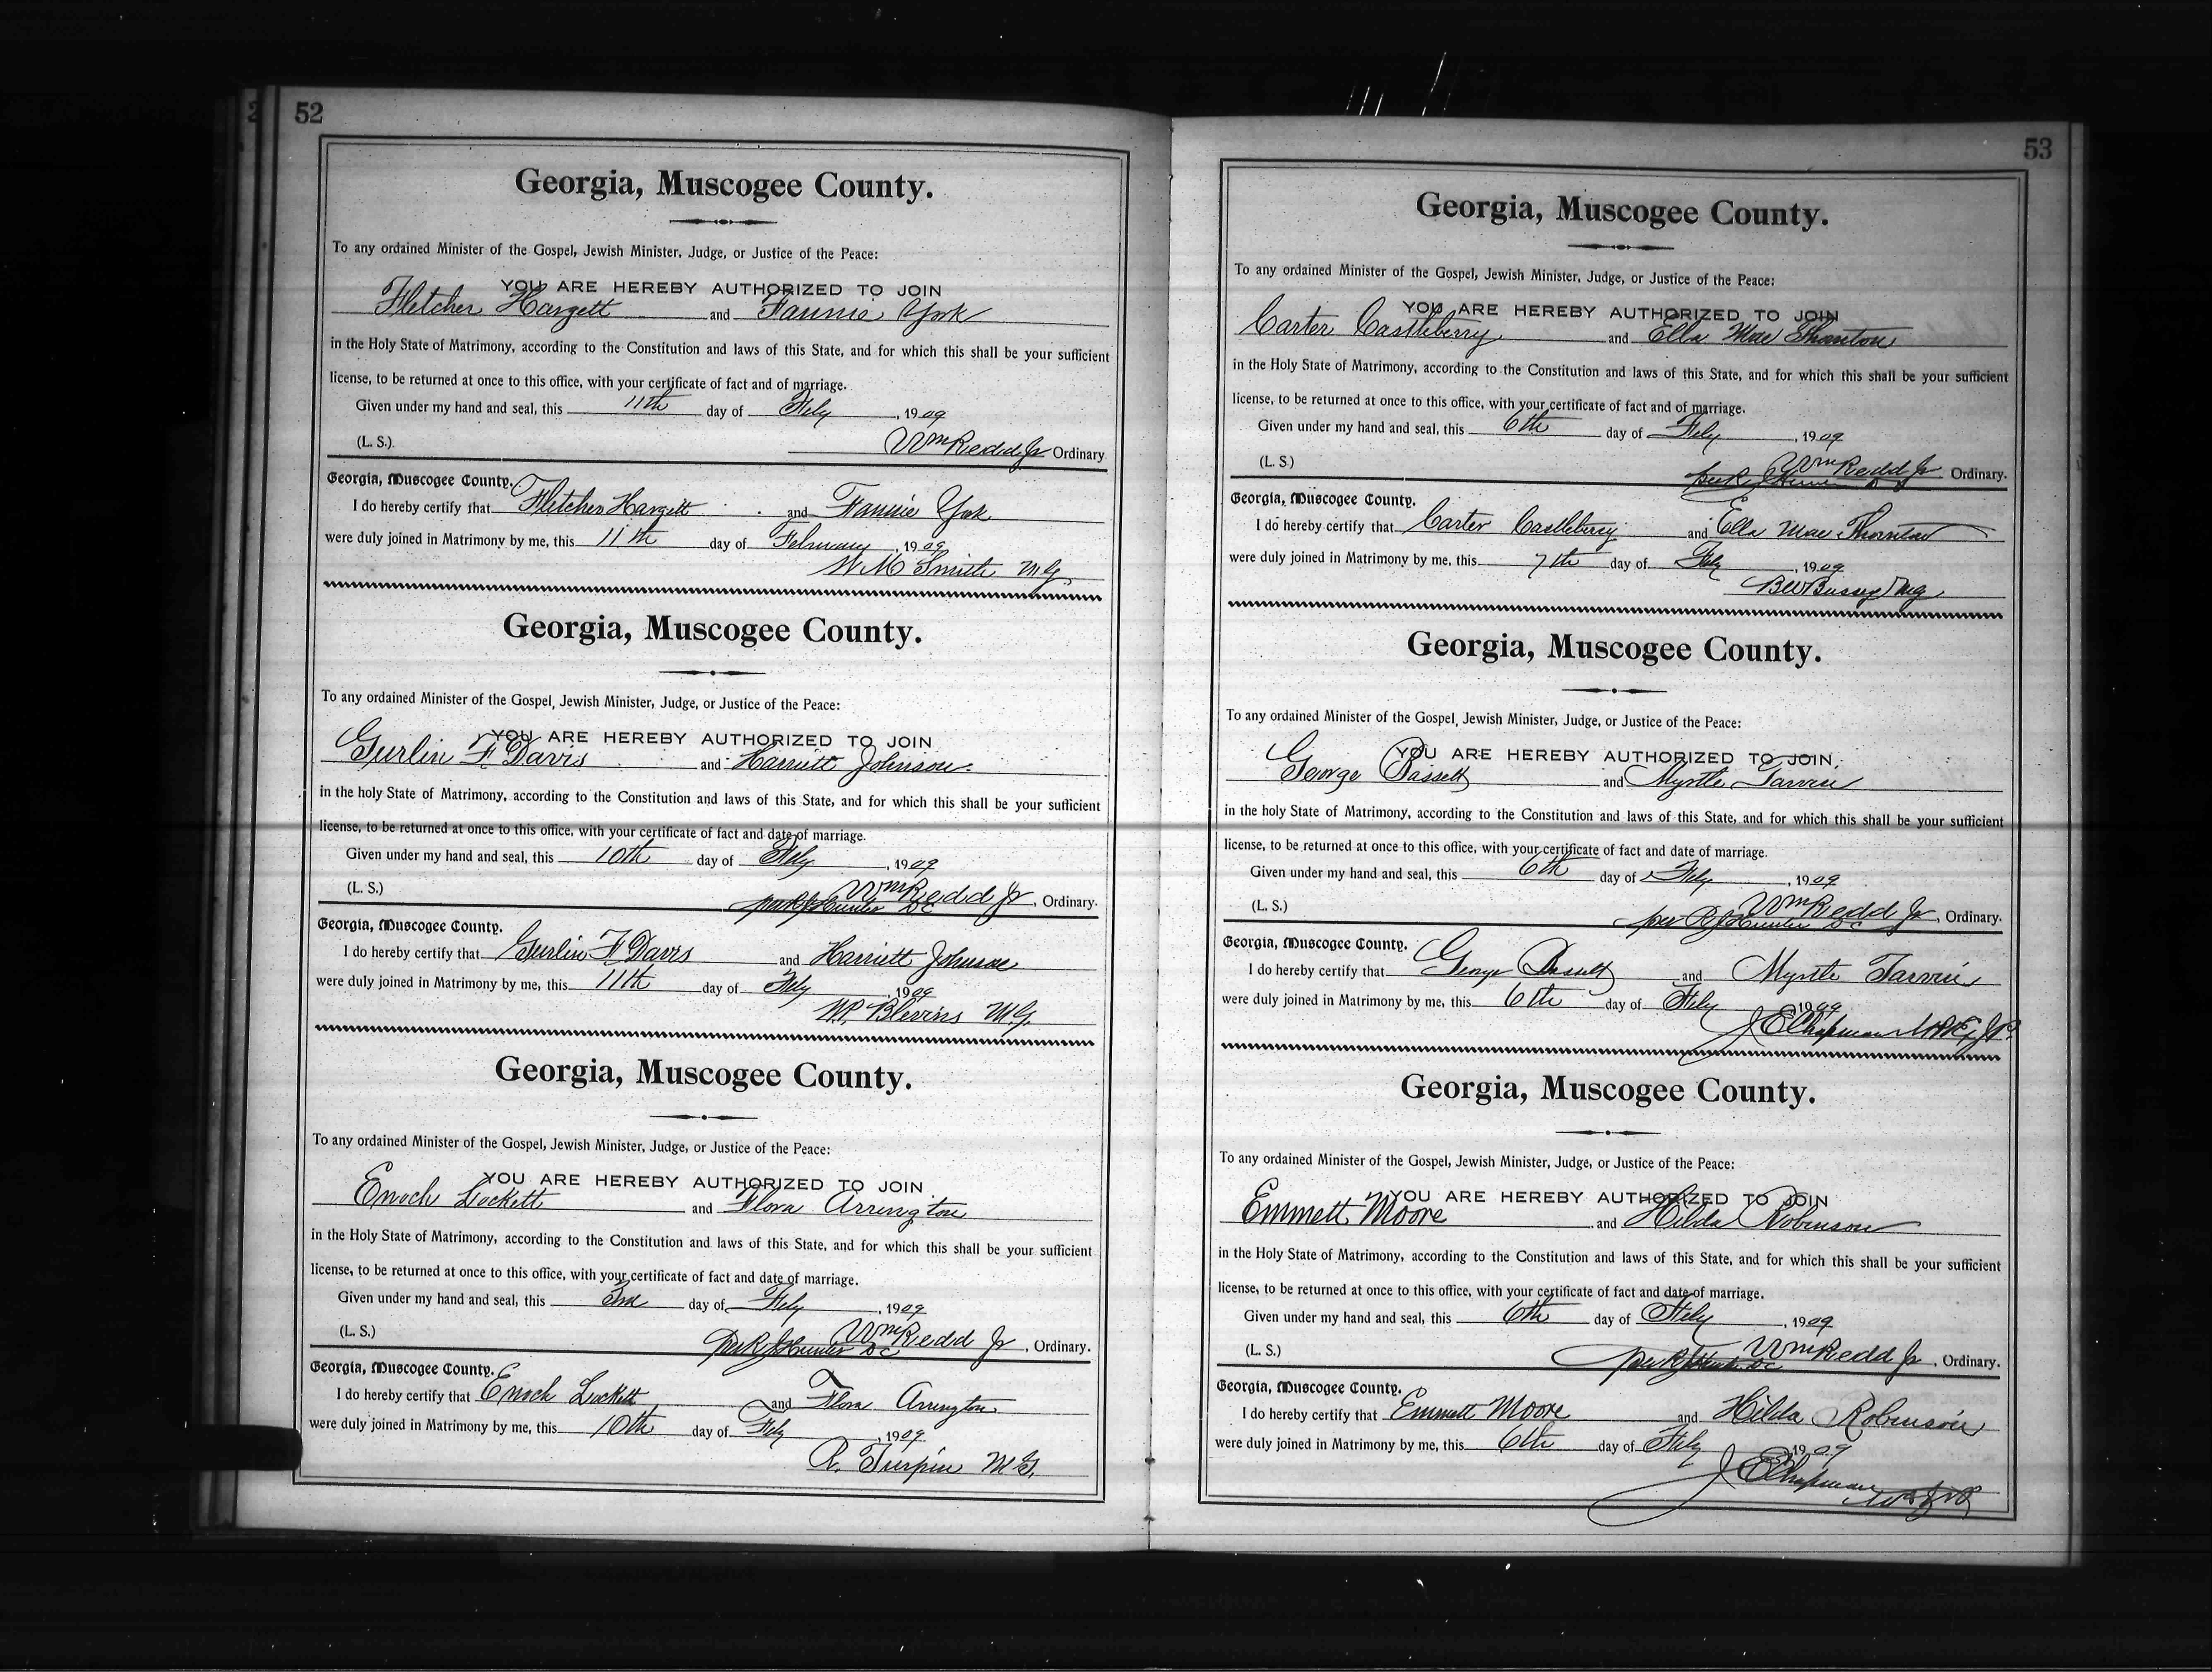 52
Georgia, Muscogee County.
To any ordained Minister of the Gospel, Jewish Minister, Judge, or Justice of the Peace:
YOU ARE HEREBY AUTHORIZED TO JOIN
Fletcher Hargett and Fannie York
in the Holy State of Matrimony, according to the Constitution and laws of this State, and for which this shall be your sufficient
license, to be returned at once to this office, with your certificate of fact and of marriage.
Given under my hand and seal, this 11th day of Feby, 1909
(L. S.) Wm Redd Jr Ordinary
Georgia, Muscogee County.
I do hereby certify that Fletcher Hargett and Fannie York
were duly joined in Matrimony by me, this 11th day of February, 1909
W M Smith M.G.
Georgia, Muscogee County.
To any ordained Minister of the Gospel, Jewish Minister, Judge, or Justice of the Peace:
YOU ARE HEREBY AUTHORIZED TO JOIN
Gurlin F Davis and Harriett Johnson
in the holy State of Matrimony, according to the Constitution and laws of this State, and for which this shall be your sufficient
license, to be returned at once to this office, with your certificate of fact and date of marriage.
Given under my hand and seal, this 10th day of Feby, 1909
(L. S.) Wm Redd Jr, Ordinary.
per R J Hunter DC
Georgia, Muscogee County.
I do hereby certify that Gurlin F Davis and Harriett Johnson
were duly joined in Matrimony by me, this 11th day of Feby, 1909
W.P. Blevins M.G.
Georgia, Muscogee County.
To any ordained Minister of the Gospel, Jewish Minister, Judge, or Justice of the Peace:
YOU ARE HEREBY AUTHORIZED TO JOIN
Enoch Lockett and Flora Arrington
in the Holy State of Matrimony, according to the Constitution and laws of this State, and for which this shall be your sufficient
license, to be returned at once to this office, with your certificate of fact and date of marriage.
Given under my hand and seal, this 3rd day of Feby, 1909
(L. S.) Wm Redd Jr, Ordinary.
per R J Hunter DC
Georgia, Muscogee County.
I do hereby certify that Enoch Lockett and Flora Arrington
were duly joined in Matrimony by me, this 10th day of Feby, 1909
R. Turpin M.G.
53
Georgia, Muscogee County.
To any ordained Minister of the Gospel, Jewish Minister, Judge, or Justice of the Peace:
YOU ARE HEREBY AUTHORIZED TO JOIN
Carter Castleberry and Ella Mae Thornton
in the Holy State of Matrimony, according to the Constitution and laws of this State, and for which this shall be your sufficient
license, to be returned at once to this office, with your certificate of fact and of marriage.
Given under my hand and seal, this 6th day of Feby, 1909
(L. S.) Wm Redd Jr, Ordinary.
per R J Hunter
Georgia, Muscogee County.
I do hereby certify that Carter Castleberry and Ella Mae Thornton
were duly joined in Matrimony by me, this 7th day of Feby, 1909
Bussey MG
Georgia, Muscogee County.
To any ordained Minister of the Gospel, Jewish Minister, Judge, or Justice of the Peace:
YOU ARE HEREBY AUTHORIZED TO JOIN
George Bassett and Myrtle Tarvin
in the holy State of Matrimony, according to the Constitution and laws of this State, and for which this shall be your sufficient
license, to be returned at once to this office, with your certificate of fact and date of marriage.
Given under my hand and seal, this 6th day of Feby, 1909
(L. S.) Wm Redd Jr, Ordinary.
per R J Hunter DC
Georgia, Muscogee County.
I do hereby certify that George Bassett and Myrtle Tarvin
were duly joined in Matrimony by me, this 6th day of Feby, 1909
J E Chapman
Georgia, Muscogee County.
To any ordained Minister of the Gospel, Jewish Minister, Judge, or Justice of the Peace:
YOU ARE HEREBY AUTHORIZED TO JOIN
Emmett Moore and Hilda Robinson
in the Holy State of Matrimony, according to the Constitution and laws of this State, and for which this shall be your sufficient
license, to be returned at once to this office, with your certificate of fact and date of marriage.
Given under my hand and seal, this 6th day of Feby, 1909
(L. S.) Wm Redd Jr, Ordinary.
per R J Hunter DC
Georgia, Muscogee County.
I do hereby certify that Emmett Moore and Hilda Robinson
were duly joined in Matrimony by me, this 6th day of Feby, 1909
J E Chapman